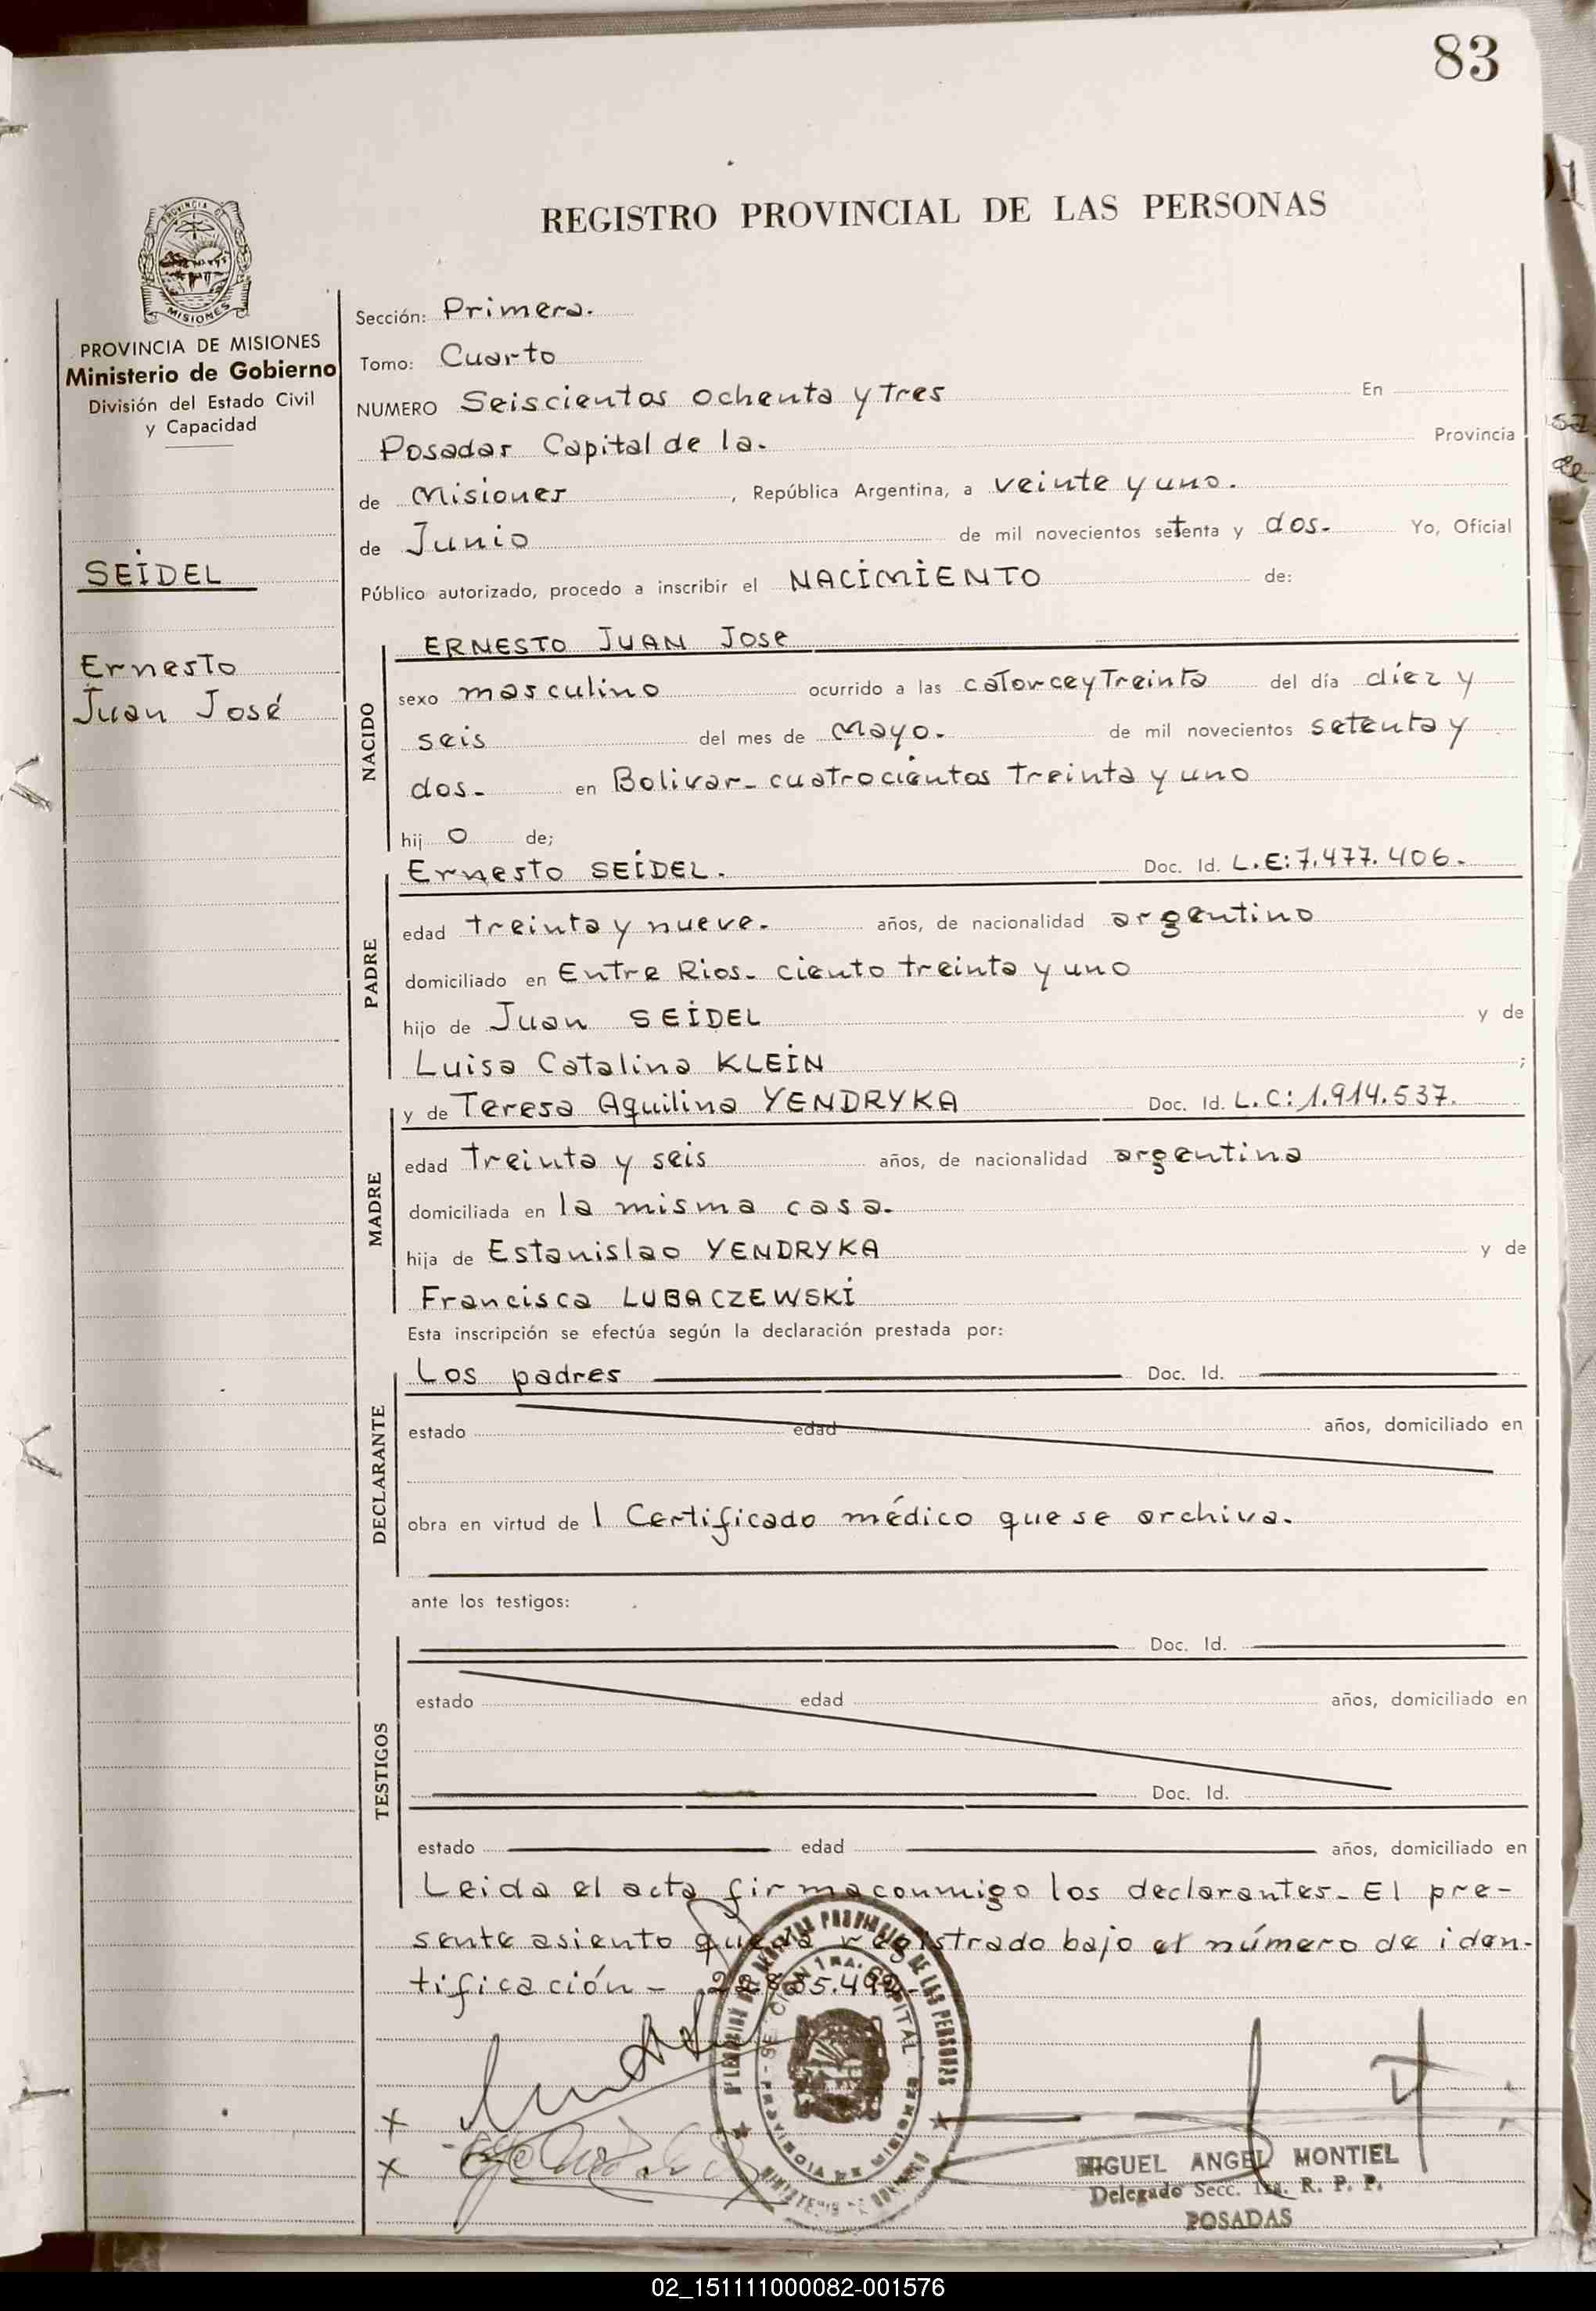 83
REGISTRO PROVINCIAL DE LAS PERSONAS
PROVINCIA DE
MISIONES
PROVINCIA DE MISIONES
Ministerio de Gobierno
División del Estado Civil
y Capacidad
SEIDEL
Ernesto
Juan José
Sección: Primera.
Tomo: Cuarto
NUMERO Seiscientos ochenta y tres En
Posadas Capital de la. Provincia
de Misiones, República Argentina, a veinte y uno.
de Junio de mil novecientos setenta y dos. Yo, Oficial
Público autorizado, procedo a inscribir el NACIMIENTO de:
NACIDO
ERNESTO JUAN Jose
sexo masculino ocurrido a las catorce y Treinta del día diez y
seis del mes de Mayo. de mil novecientos setenta y
dos. en Bolivar - cuatrocientos treinta y uno
hijo de;
PADRE
Ernesto SEIDEL. Doc. Id. L.E: 7.477.406.
edad treinta y nueve. años, de nacionalidad argentino
domiciliado en Entre Rios - ciento treinta y uno
hijo de Juan SEIDEL y de
Luisa Catalina KLEIN ;
MADRE
y de Teresa Aquilina YENDRYKA Doc. Id. L.C: 1.914.537.
edad treinta y seis años, de nacionalidad argentina
domiciliada en la misma casa.
hija de Estanislao YENDRYKA y de
Francisca LUBACZEWSKI
Esta inscripción se efectúa según la declaración prestada por:
DECLARANTE
Los padres Doc. Id.
estado edad años, domiciliado en
obra en virtud de 1 Certificado médico que se archiva.
ante los testigos:
TESTIGOS
Doc. Id.
estado edad años, domiciliado en
Doc. Id.
estado edad años, domiciliado en
Leida el acta firma conmigo los declarantes - El pre-
sente asiento queda registrado bajo el número de iden-
tificación -
x
x
MIGUEL ANGEL MONTIEL
Delegado Secc. 1ra. R. P. P.
POSADAS
02_151111000082-001576